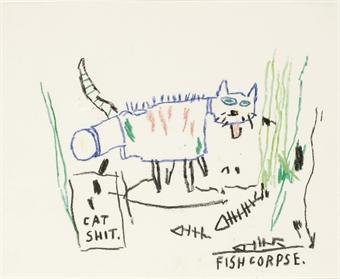 CAT
SHIT.
FISH CORPSE.